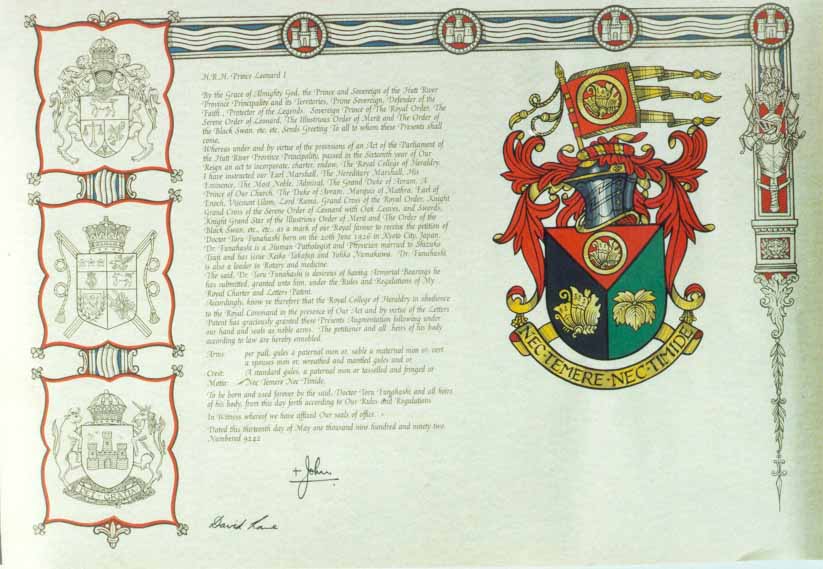 H.R.H. Prince Leonard I
By the Grace of Almighty God, the Prince and Sovereign of the Hutt River
Province Principality and its Territories, Prime Sovereign, Defender of the
Faith, Protector of the Legends. Sovereign Prince of The Royal Order, The
Serene Order of Leonard, The Illustrious Order of Merit and The Order of
the Black Swan, etc, etc, Sends Greeting To all to whom these Presents shall
come,
Whereas under and by virtue of the provisions of an Act of the Parliament of
the Hutt River Province Principality, passed in the Sixteenth year of Our
Reign an act to incorporate, charter, endow, The Royal College of Heraldry,
I have instructed our Earl Marshall, The Hereditary Marshall, His
Eminence, The Most Noble, Admiral, The Grand Duke of Avram, A
Prince of Our Church, The Duke of Avram, Marquis of Mathra, Earl of
Enoch, Viscount Glam, Lord Rama, Grand Cross of the Royal Order, Knight
Grand Cross of the Serene Order of Leonard with Oak Leaves, and Swords,
Knight Grand Star of the Illustrious Order of Merit and The Order of the
Black Swan, etc., etc., as a mark of our Royal favour to receive the petition of
Doctor Toru Funahashi born on the 20th June 1926 in Kyoto City, Japan.
Dr. Funahashi is a Human Pathologist and Physician married to Shizuka
Tsuji and has issue Keiko Takafuji and Yuhka Numakawa. Dr. Funahashi
is also a leader in Rotary and medicine.
The said, Dr. Toru Funahashi is desireous of having Armorial Bearings he
has submitted, granted unto him, under the Rules and Regulations of My
Royal Charter and Letters Patent.
Accordingly, know ye therefore that the Royal College of Heraldry in obedience
to the Royal Command in the presence of Our Act and by virtue of the Letters
Patent has graciously granted these Presents Augmentation following under
our hand and seals as noble arms. The petitioner and all heirs of his body
according to law are hereby ennobled.
Arms: per pall, gules a paternal mon or, sable a maternal mon or, vert
a spouses mon or, wreathed and mantled gules and or
Crest: A standard gules, a paternal mon or tasselled and fringed or
Motto: Nec Temere Nec Timide.
To be born and used forever by the said, Doctor Toru Funahashi and all heirs
of his body, from this day forth according to Our Rules and Regulations
In Witness whereof we have affixed Our seals of office.
Dated this thirteenth day of May one thousand nine hundred and ninety two.
Numbered 9242
+ John
David Rane
NEC·TEMERE·NEC·TIMIDE